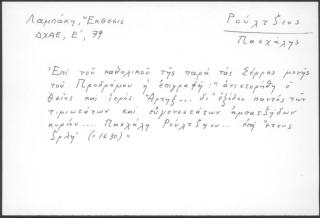 Λαμπάκη, Ἔκθεσις
ΔΧΑΕ, Ε', 79
Ρούλτζιος
Πασχάλης
Ἐπί τοῦ καθολικοῦ τῆς παρά τάς Σέρρας μονῆς
τοῦ Προδρόμου ἡ ἐπιγραφή: "ἀνιστορήθη ὁ
θεῖος καί ἱερός Ἄρτηξ... δι' ἐξόδου παντός τῶν
τιμιωτάτων καί εὐγενεστάτων ἀμπατζήδων
κυρίου.... Πασχάλη Ρούλτζιου... ἐπί ἔτους
ζρλή (=1630)"